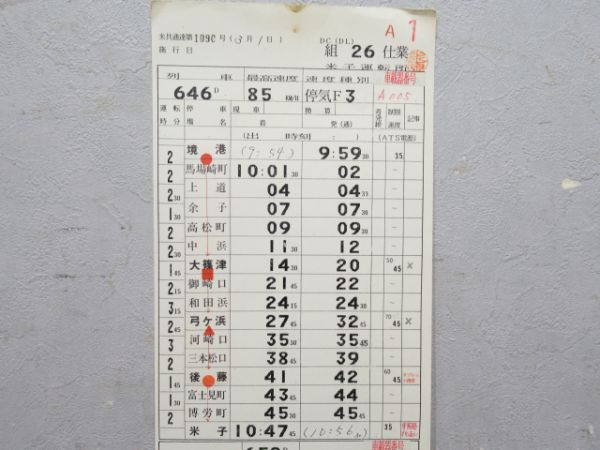 米共通達第1090号(3月1日) DC(DL) A 1
施行日 組 26 仕業
米子運転所
列車 最高速度 速度種別
646D 85 km/h 停気F3 A005
運転 停車 現車 換算 制限速度 記事
時分 場名 着 発(通)
(出 時刻 : ) (ATS電源)
境港 (9:54) 9:59 30 35
2
馬場崎町 10:01 30 02 ~
2
上道 04 04 ~
2 30
余子 07 07 30 ~
1 30
高松町 09 09 30 ~
2
中浜 11 30 12 ~
2 30
大篠津 14 30 20 50 45 ×
1 45
御崎口 21 45 22 ~
2 15
和田浜 24 15 24 30 ~
3 15
弓ケ浜 27 45 32 45 70 45 ×
2 45
河崎口 35 30 35 45 ~
3
三本松口 38 45 39 ~
2
後藤 41 42 60 45
1 45
富士見町 43 45 44 ~
1 30
博労町 45 30 45 45 ~
2
米子 10:47 45 (10:56) 35